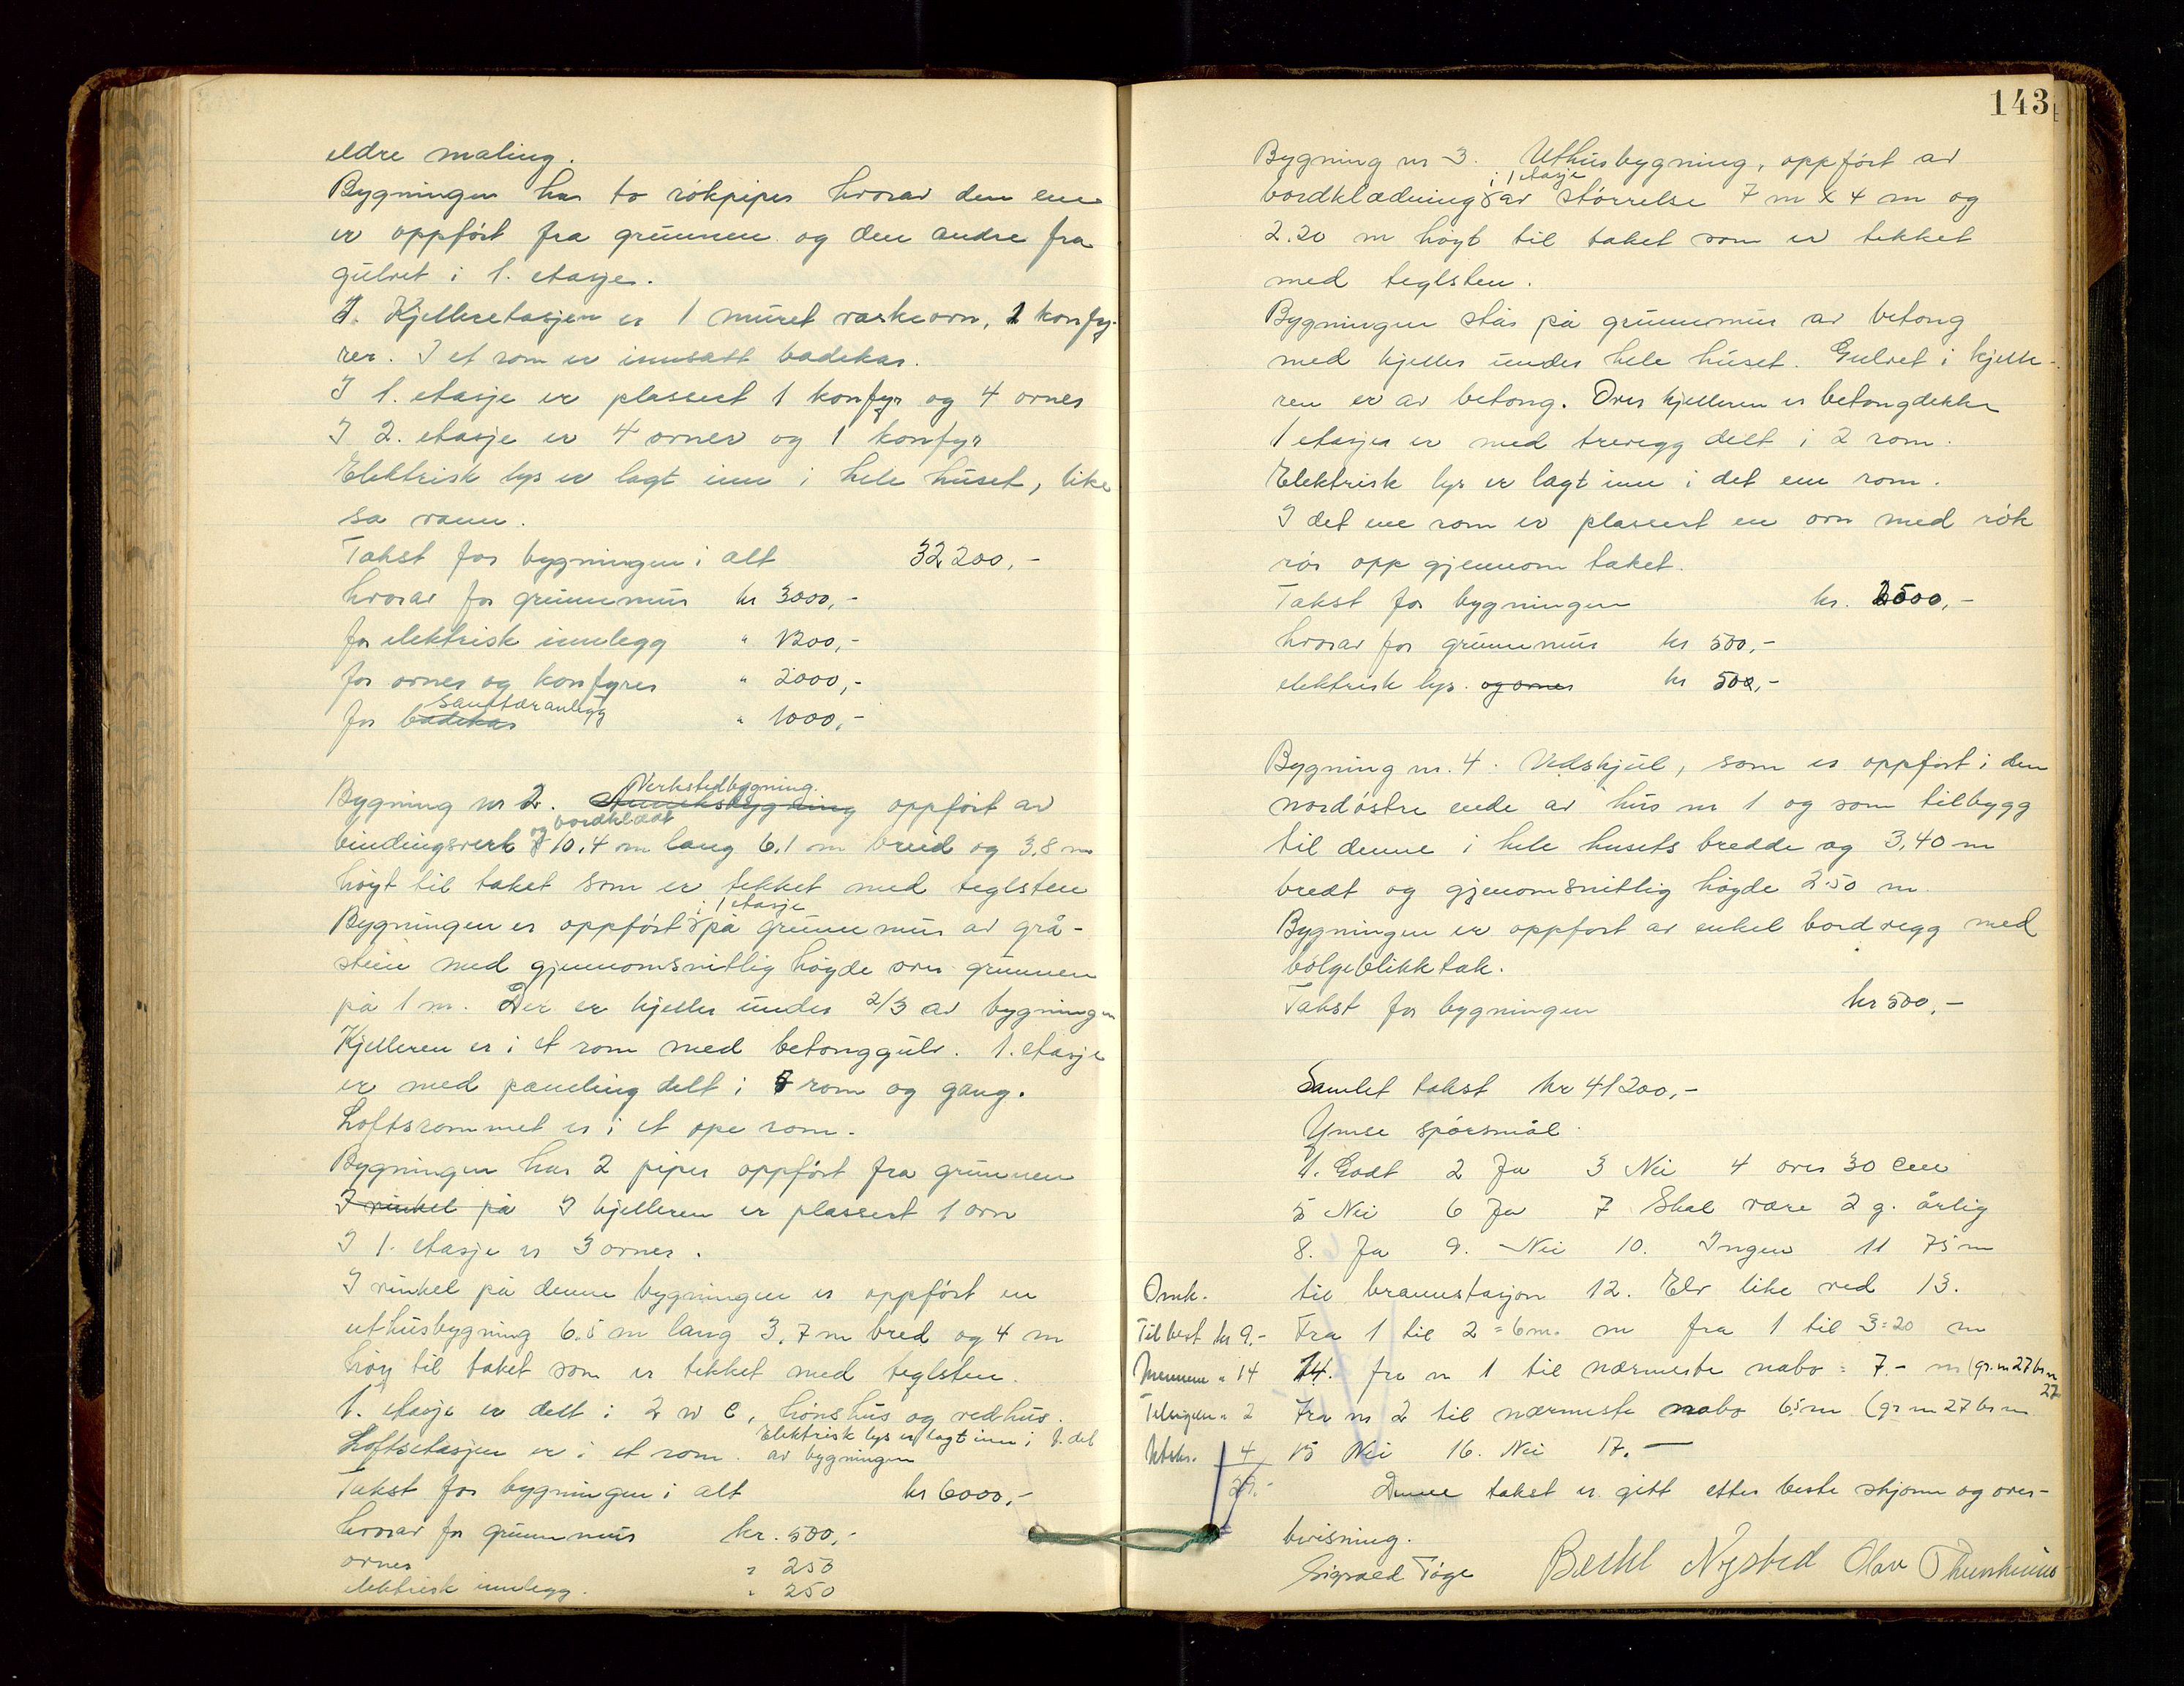 eldre maling.
Bygningen har to rökpiper hvorav den ene
er oppfört fra grunnen og den andre fra
gulvet i 1. etasje.
I. Kjelleretasjen er 1 muret vaskeovn, 2 konfy-
rer. I et rom er innsatt badekar.
I 1. etasje er plassert 1 konfyr og 4 ovner
I 2. etasje er 4 ovner og 1 konfyr
Elektrisk lys er lagt inn i hele huset, like
så vann.
Takst for bygningen i alt 32200,-
hvorav for grunnmur kr 3000,-
for elektrisk innlegg " 1200,-
for ovner og konfyrer " 2000,-
sanitæranlegg
for badekar " 1000,-
Verkstedbygning.
Bygning nr 2. Anneksbygning oppfört av
og bordklædt
bindingsverk 10,4 m lang 6,1 m breid og 3,8 m
höyt til taket som er tekket med teglsten
i 1 etasje
Bygningen er oppfört på grunnmur av grå-
stein med gjennomsnitlig höyde over grunnen
på 1 m. Der er kjeller under 2/3 av bygningen
Kjelleren er i et rom med betonggulv. 1. etasje
er med paneling delt i rom og gang.
Loftsrommet er i et ope rom.
Bygningen har 2 piper oppfört fra grunnen
I vinkel på I kjelleren er plassert 1 ovn
I 1. etasje er 3 ovner.
I vinkel på denne bygningen er oppfört en
uthusbygning 6.5 m lang 3,7 m bred og 4 m
höy til taket som er tekket med teglsten.
1. etasje er delt i 2 w c, hönshus og vedhus.
Elektrisk lys er lagt inn i 1. del
Loftsetasjen er i et rom. av bygningen
Takst for bygningen i alt kr 6000,-
hvorav for grunnmur kr. 500,-
ovner " 250
elektrisk innlegg. " 250
143
Bygning nr 3. Uthusbygning, oppfört av
i 1 etasje
bordklædning av störrelse 7 m x 4 m og
2.20 m höyt til taket som er tekket
med teglsten.
Bygningen står på grunnmur av betong
med kjeller under hele huset. Gulvet i kjelle-
ren er av betong. Over kjelleren er betongdekke
1 etasjen er med trevegg delt i 2 rom.
Elektrisk lys er lagt inn i det ene rom.
I det ene rom er plassert en ovn med rök
rör opp gjennom taket.
Takst for bygningen kr. 2500,-
hvorav for grunnmur kr 500,-
elektrisk lys. og ovner kr 500,-
Bygning nr. 4. Vedskjul, som er oppfört i den
nordöstre ende av hus nr 1 og som tilbygg
til denne i hele husets bredde og 3,40 m
bredt og gjenomsnitlig högde 2.50 m.
Bygningen er oppfört av enkel bordvegg med
bölgeblikktak.
Takst for bygningen kr 500,-
Samlet takst kr 41200,-
Ymse spörsmål.
1. Godt 2 Ja 3 Nei 4 over 30 cm
5 Nei 6 Ja 7 Skal være 2 g. årlig
8. Ja 9. Nei 10. Ingen 11 75 m
Omk. til brannstasjon 12. Elv like ved 13.
Til best kr 9.- Fra 1 til 2 = 6 m. m fra 1 til 3 = 20 m
Mennene " 14 14. fra nr 1 til nærmeste nabo = 7.- m (gr.nr 27 br nr
27
Telsingelse " 2 Fra nr 2 til nærmeste nabo 6,5 m (gr nr 27 br nr
Utskr. 4 15 Nei 16. Nei 17. —
29.- Denne takst er gitt etter beste skjönn og over-
bevisning.
Sigvald Töge Bertel Nysted Olav